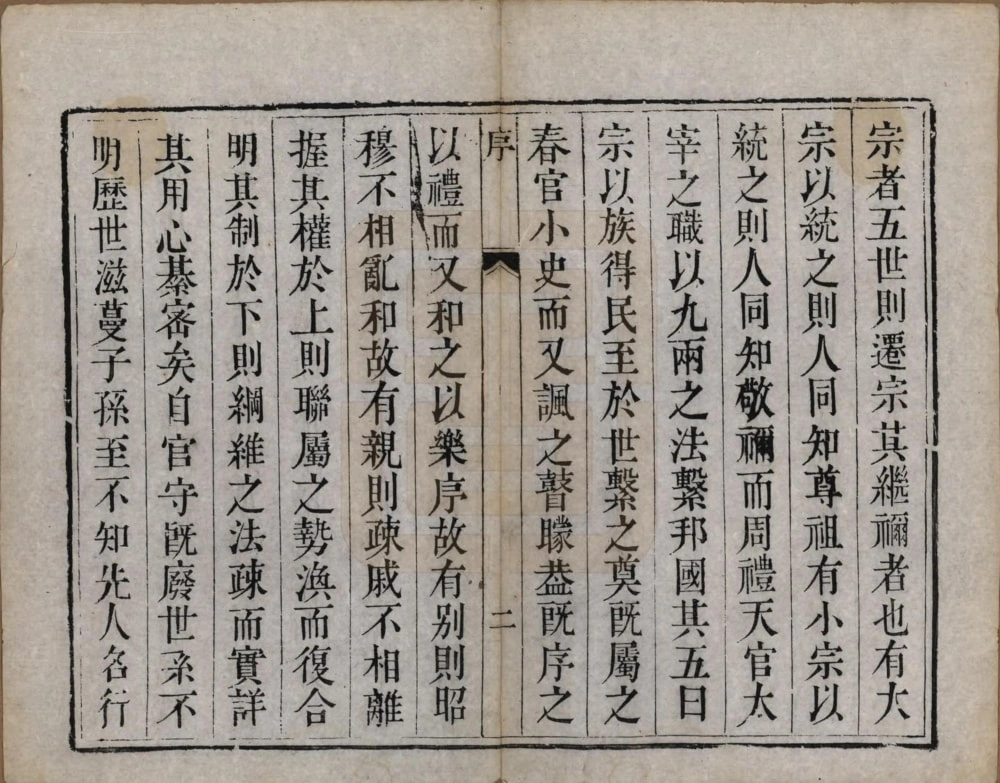 宗者五世則遷宗其繼禰者也有大
宗以統之則人同知尊祖有小宗以
統之則人同知敬禰而周禮天官太
宰之職以九兩之法繫邦國其五曰
宗以族得民至於世繫之奠旣屬之
春官小史而又諷之瞽矇葢旣序之
序
二
以禮而又和之以樂序故有别則昭
穆不相亂和故有親則疎戚不相離
握其權於上則聯屬之勢渙而復合
明其制於下則綱維之法疎而實詳
其用心綦密矣自官守旣廢世系不
明歷世滋蔓子孫至不知先人名行